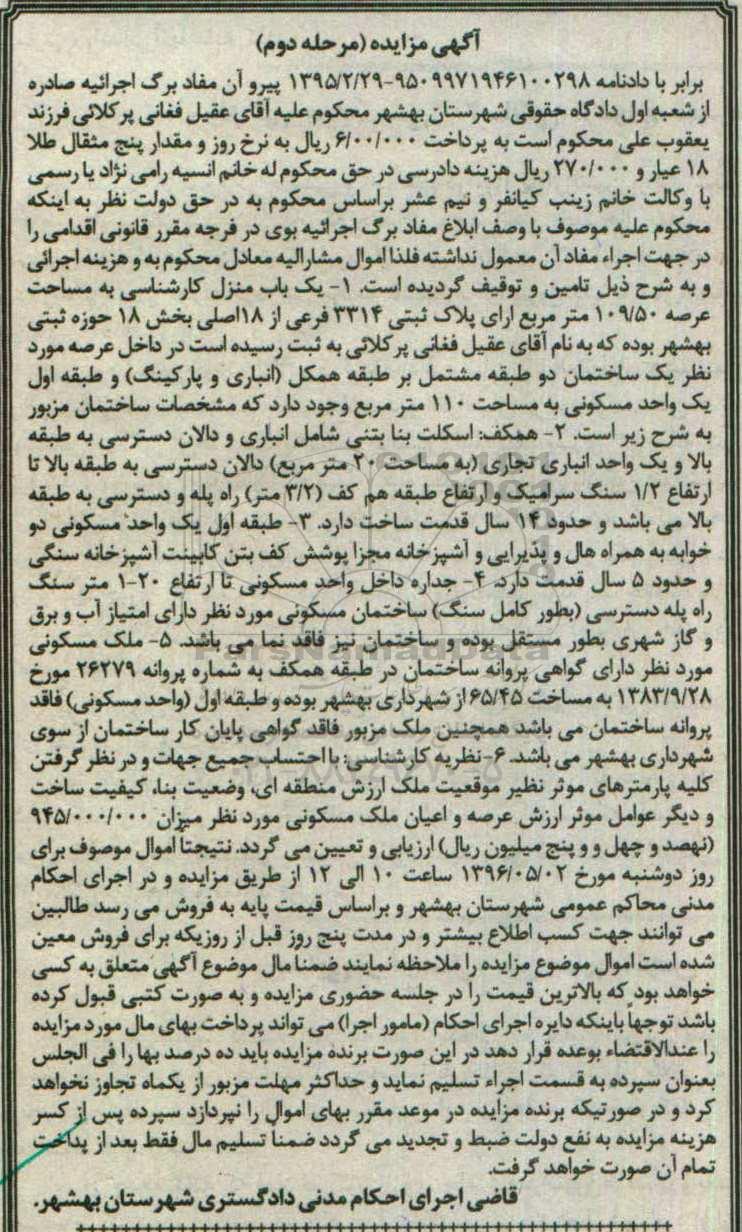 آگهی مزایده (مرحله دوم)
برابر با دادنامه ۹۵۰۹۹۷۱۹۴۶۱۰۰۲۹۸-۱۳۹۵/۲/۲۹ پیرو آن مفاد برگ اجرائیه صادره
از شعبه اول دادگاه حقوقی شهرستان بهشهر محکوم علیه آقای عقیل فغانی پرکلائی فرزند
یعقوب علی محکوم است به پرداخت ۶/۰۰/۰۰۰ ریال به نرخ روز و مقدار پنج مثقال طلا
۱۸ عیار و ۲۷۰/۰۰۰ ریال هزینه دادرسی در حق محکوم له خانم انسیه رامی نژاد یا رسمی
با وکالت خانم زینب کیانفر و نیم عشر براساس محکوم به در حق دولت نظر به اینکه
محکوم علیه موصوف با وصف ابلاغ مفاد برگ اجرائیه بوی در فرجه مقرر قانونی اقدامی را
در جهت اجراء مفاد آن معمول نداشته فلذا اموال مشارالیه معادل محکوم به و هزینه اجرائی
و به شرح ذیل تامین و توقیف گردیده است. ۱- یک باب منزل کارشناسی به مساحت
عرصه ۱۰۹/۵۰ متر مربع ارای پلاک ثبتی ۳۳۱۴ فرعی از ۱۸اصلی بخش ۱۸ حوزه ثبتی
بهشهر بوده که به نام آقای عقیل فغانی پرکلائی به ثبت رسیده است در داخل عرصه مورد
نظر یک ساختمان دو طبقه مشتمل بر طبقه همکل (انباری و پارکینگ) و طبقه اول
یک واحد مسکونی به مساحت ۱۱۰ متر مربع وجود دارد که مشخصات ساختمان مزبور
به شرح زیر است. ۲- همکف: اسکلت بنا بتنی شامل انباری و دالان دسترسی به طبقه
بالا و یک واحد انباری تجاری (به مساحت ۲۰ متر مربع) دالان دسترسی به طبقه بالا تا
ارتفاع ۱/۲ سنگ سرامیک و ارتفاع طبقه هم کف (۳/۲ متر) راه پله و دسترسی به طبقه
بالا می باشد و حدود ۱۴ سال قدمت ساخت دارد. ۳- طبقه اول یک واحد مسکونی دو
خوابه به همراه هال و پذیرایی و آشپزخانه مجزا پوشش کف بتن کابینت آشپزخانه سنگی
و حدود ۵ سال قدمت دارد. ۴- جداره داخل واحد مسکونی تا ارتفاع ۲۰-۱ متر سنگ
راه پله دسترسی (بطور کامل سنگ) ساختمان مسکونی مورد نظر دارای امتیاز آب و برق
و گاز شهری بطور مستقل بوده و ساختمان نیز فاقد نما می باشد. ۵- ملک مسکونی
مورد نظر دارای گواهی پروانه ساختمان در طبقه همکف به شماره پروانه ۲۶۲۷۹ مورخ
۱۳۸۳/۹/۲۸ به مساحت ۶۵/۴۵ از شهرداری بهشهر بوده و طبقه اول (واحد مسکونی) فاقد
پروانه ساختمان می باشد همچنین ملک مزبور فاقد گواهی پایان کار ساختمان از سوی
شهرداری بهشهر می باشد. ۶- نظریه کارشناسی: با احتساب جمیع جهات و در نظر گرفتن
کلیه پارمترهای موثر نظیر موقعیت ملک ارزش منطقه ای، وضعیت بنا، کیفیت ساخت
و دیگر عوامل موثر ارزش عرصه و اعیان ملک مسکونی مورد نظر میزان ۹۴۵/۰۰۰/۰۰۰
(نهصد و چهل و و پنج میلیون ریال) ارزیابی و تعیین می گردد. نتیجتاً اموال موصوف برای
روز دوشنبه مورخ ۱۳۹۶/۰۵/۰۲ ساعت ۱۰ الی ۱۲ از طریق مزایده و در اجرای احکام
مدنی محاکم عمومی شهرستان بهشهر و براساس قیمت پایه به فروش می رسد طالبین
می توانند جهت کسب اطلاع بیشتر و در مدت پنج روز قبل از روزیکه برای فروش معین
شده است اموال موضوع مزایده را ملاحظه نمایند ضمناً مال موضوع آگهی متعلق به کسی
خواهد بود که بالاترین قیمت را در جلسه حضوری مزایده و به صورت کتبی قبول کرده
باشد توجهاً باینکه دایره اجرای احکام (مامور اجرا) می تواند پرداخت بهای مال مورد مزایده
را عندالاقتضاء بوعده قرار دهد در این صورت برنده مزایده باید ده درصد بها را فی الجلس
بعنوان سپرده به قسمت اجراء تسلیم نماید و حداکثر مهلت مزبور از یکماه تجاوز نخواهد
کرد و در صورتیکه برنده مزایده در موعد مقرر بهای اموال را نپردازد سپرده پس از کسر
هزینه مزایده به نفع دولت ضبط و تجدید می گردد ضمناً تسلیم مال فقط بعد از پداخت
تمام آن صورت خواهد گرفت.
قاضی اجرای احکام مدنی دادگستری شهرستان بهشهر.